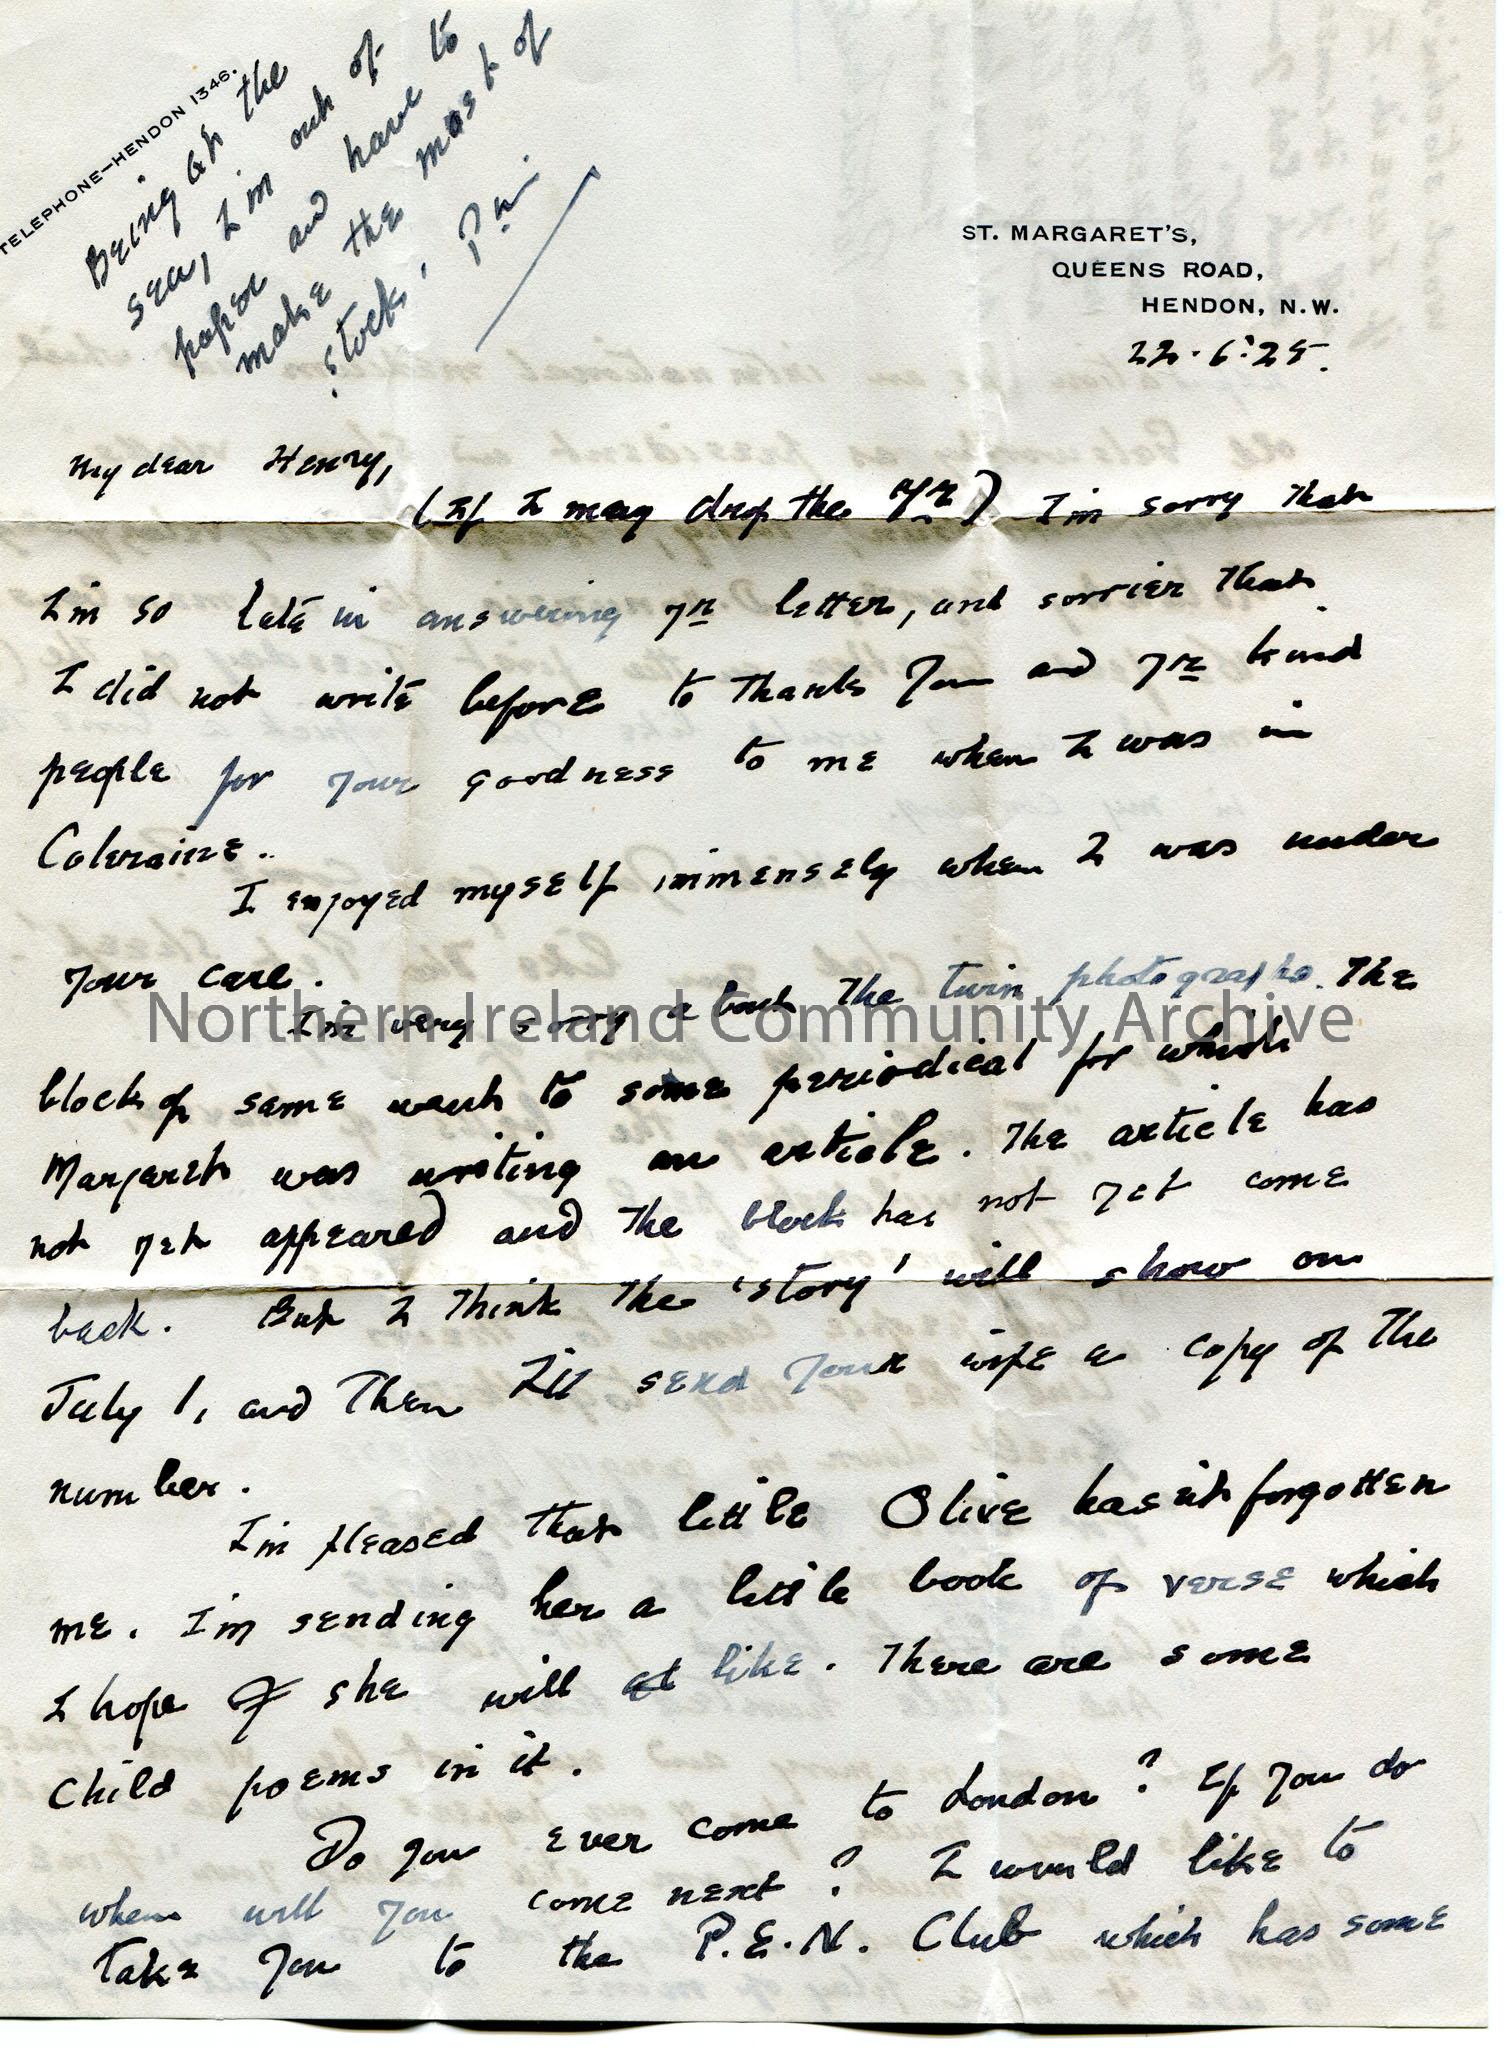 TELEPHONE—HENDON 1346.
Being at the
sea, I'm out of
paper and have to
make the most of
stock!
ST. MARGARET'S,
QUEENS ROAD,
HENDON, N.W.
22.6.25.
My dear Henry,
(If I may drop the Mr) I'm sorry that
I'm so late in answering yr letter, and sorrier that
I did not write before to thank you and yr kind
people for your goodness to me when I was in
Coleraine.
I enjoyed myself immensely when I was under
your care.
I'm very sorry about the twin photographs. The
block of same went to some periodical for which
Margaret was writing an article. The article has
not yet appeared and the block has not yet come
back. But I think the 'story' will show on
July 1, and then I'll send your wife a copy of the
number.
I'm pleased that little Olive hasn't forgotten
me. I'm sending her a little book of verse which
I hope she will like. There are some
Child poems in it.
Do you ever come to London? If you do
when will you come next? I would like to
take you to the P.E.N. Club which has some
Northern Ireland Community Archive